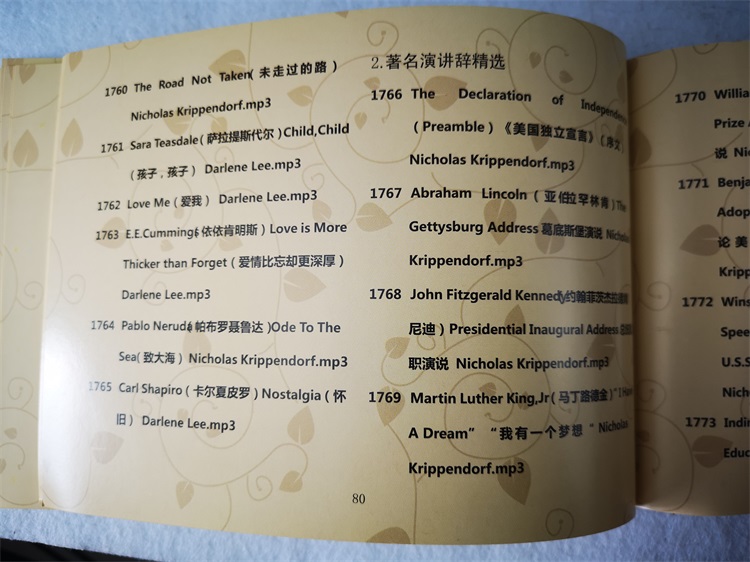 1760 The Road Not Taken(未走过的路)
Nicholas Krippendorf.mp3
1761 Sara Teasdale(萨拉提斯代尔)Child,Child
(孩子，孩子) Darlene Lee.mp3
1762 Love Me(爱我) Darlene Lee.mp3
1763 E.E.Cummings(依依肯明斯)Love is More
Thicker than Forget(爱情比忘却更深厚)
Darlene Lee.mp3
1764 Pablo Neruda(帕布罗聂鲁达)Ode To The
Sea(致大海) Nicholas Krippendorf.mp3
1765 Carl Shapiro(卡尔夏皮罗)Nostalgia(怀
旧) Darlene Lee.mp3
2.著名演讲辞精选
1766 The Declaration of Independence
(Preamble)《美国独立宣言》(序文)
Nicholas Krippendorf.mp3
1767 Abraham Lincoln(亚伯拉罕林肯)The
Gettysburg Address 葛底斯堡演说 Nicholas
Krippendorf.mp3
1768 John Fitzgerald Kennedy(约翰菲茨杰拉德肯
尼迪)Presidential Inaugural Address
职演说 Nicholas Krippendorf.mp3
1769 Martin Luther King,Jr(马丁路德金)"I Have
A Dream" "我有一个梦想" Nicholas
Krippendorf.mp3
80
1770 Willia
Prize A
说 Nic
1771 Benja
Adop
论 美
Kripp
1772 Wins
Spee
U.S.S
Nich
1773 Indir
Educ